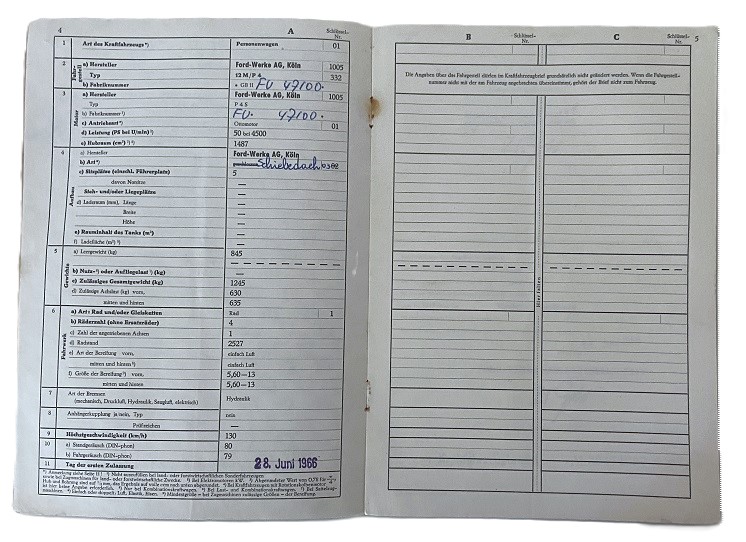 4
A
Schlüssel-
Nr.
1 Art des Kraftfahrzeugs⁴) Personenwagen 01
2 a) Hersteller Ford-Werke AG, Köln 1005
Typ 12 M/P 4 332
b) Fabriknummer GB 11 FU 47100.
3 a) Hersteller Ford-Werke AG, Köln 1005
Typ P 4 S
b) Fabriknummer FU. 47100.
c) Antriebsart Ottomotor 01
d) Leistung (PS bei U/min) 50 bei 4500
e) Hubraum (cm³) 1487
Motor
4 a) Hersteller Ford-Werke AG, Köln
b) Art Schiebedach 0302
c) Sitzplätze (einschl. Führerplatz) 5
davon Notsitze —
Steh- und/oder Liegeplätze —
d) Laderaum (mm), Länge —
Breite —
Höhe —
e) Rauminhalt des Tanks (m³) —
f) Ladefläche (m²) —
Aufbau
5 a) Leergewicht (kg) 845
b) Nutz- oder Aufliegelast (kg) —
c) Zulässiges Gesamtgewicht (kg) 1245
d) Zulässige Achslast (kg) vorn, 630
mitten und hinten 635
Gewichte
6 a) Art: Rad und/oder Gleisketten Rad 1
b) Räderzahl (ohne Ersatzräder) 4
c) Zahl der angetriebenen Achsen 1
d) Radstand 2527
e) Art der Bereifung vorn, einfach Luft
mitten und hinten einfach Luft
f) Größe der Bereifung vorn, 5,60—13
mitten und hinten 5,60—13
Fahrwerk
7 Art der Bremsen
(mechanisch, Druckluft, Hydraulik, Saugluft, elektrisch) Hydraulik
8 Anhängerkupplung ja/nein, Typ nein
Prüfzeichen —
9 Höchstgeschwindigkeit (km/h) 130
10 a) Standgeräusch (DIN-phon) 80
b) Fahrgeräusch (DIN-phon) 79
11 Tag der ersten Zulassung 28. Juni 1966
B
Schlüssel-
Nr.
C
Schlüssel-
Nr.
5
Die Angaben über das Fahrgestell dürfen im Kraftfahrzeugbrief grundsätzlich nicht geändert werden. Wenn die Fahrgestell-
nummer nicht mit der am Fahrzeug angebrachten übereinstimmt, gehört der Brief nicht zum Fahrzeug.
Hier falten